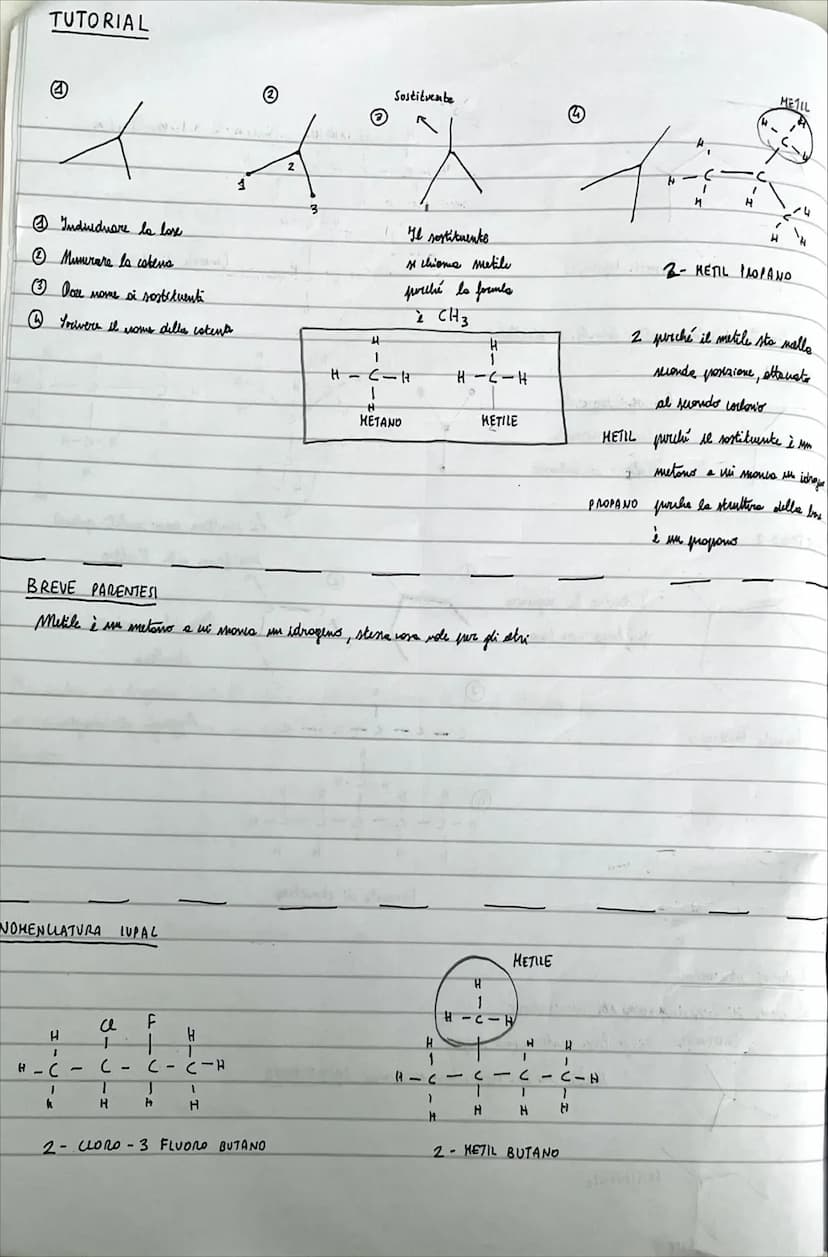 TUTORIAL
① ② ③ Sostituente ④ METIL
1 2 3
H H H C
H - C - C
H H C H
H H
① Individuare la base
② Numerare la catena
③ Dare nome ai sostituenti
④ Scrivere il nome della catena
Il sostituente
si chiama metile
perché la formula
è CH3
2 - METIL PROPANO
H H
H - C - H H - C - H
H
METANO METILE
2 perché il metile sta nella
seconda posizione, attaccato
al secondo carbonio
METIL perché il sostituente è un
metano a cui manca un idrogeno
PROPANO perche la struttura della base
è un propano
BREVE PARENTESI
Metile è un metano a cui manca un idrogeno, stessa cosa vale per gli altri
NOMENCLATURA IUPAC
METILE
H
H - C - H
H Cl F H
H - C - C - C - C - H
H H H H
H H H
H - C - C - C - C - H
H H H H
2 - CLORO - 3 FLUORO BUTANO
2 - METIL BUTANO